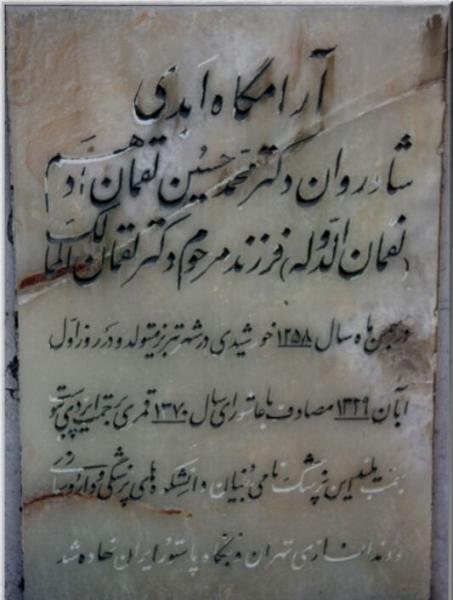 آرامگاه ابدی
شادروان دکتر محمد حسین لقمان ادهم
(لقمان الدوله) فرزند مرحوم دکتر لقمان الممالک
در بهمن ماه سال ۱۲۵۸ خورشیدی در شهر تبریز متولد و در روز اول
آبان ۱۳۲۹ مصادف با عاشورای سال ۱۳۷۰ قمری برحمت ایزدی پیوست
این پزشک نامی و بنیان دانشکده های پزشکی و داروسازی
و دندانسازی تهران و بنگاه پاستور ایران نهاده شد